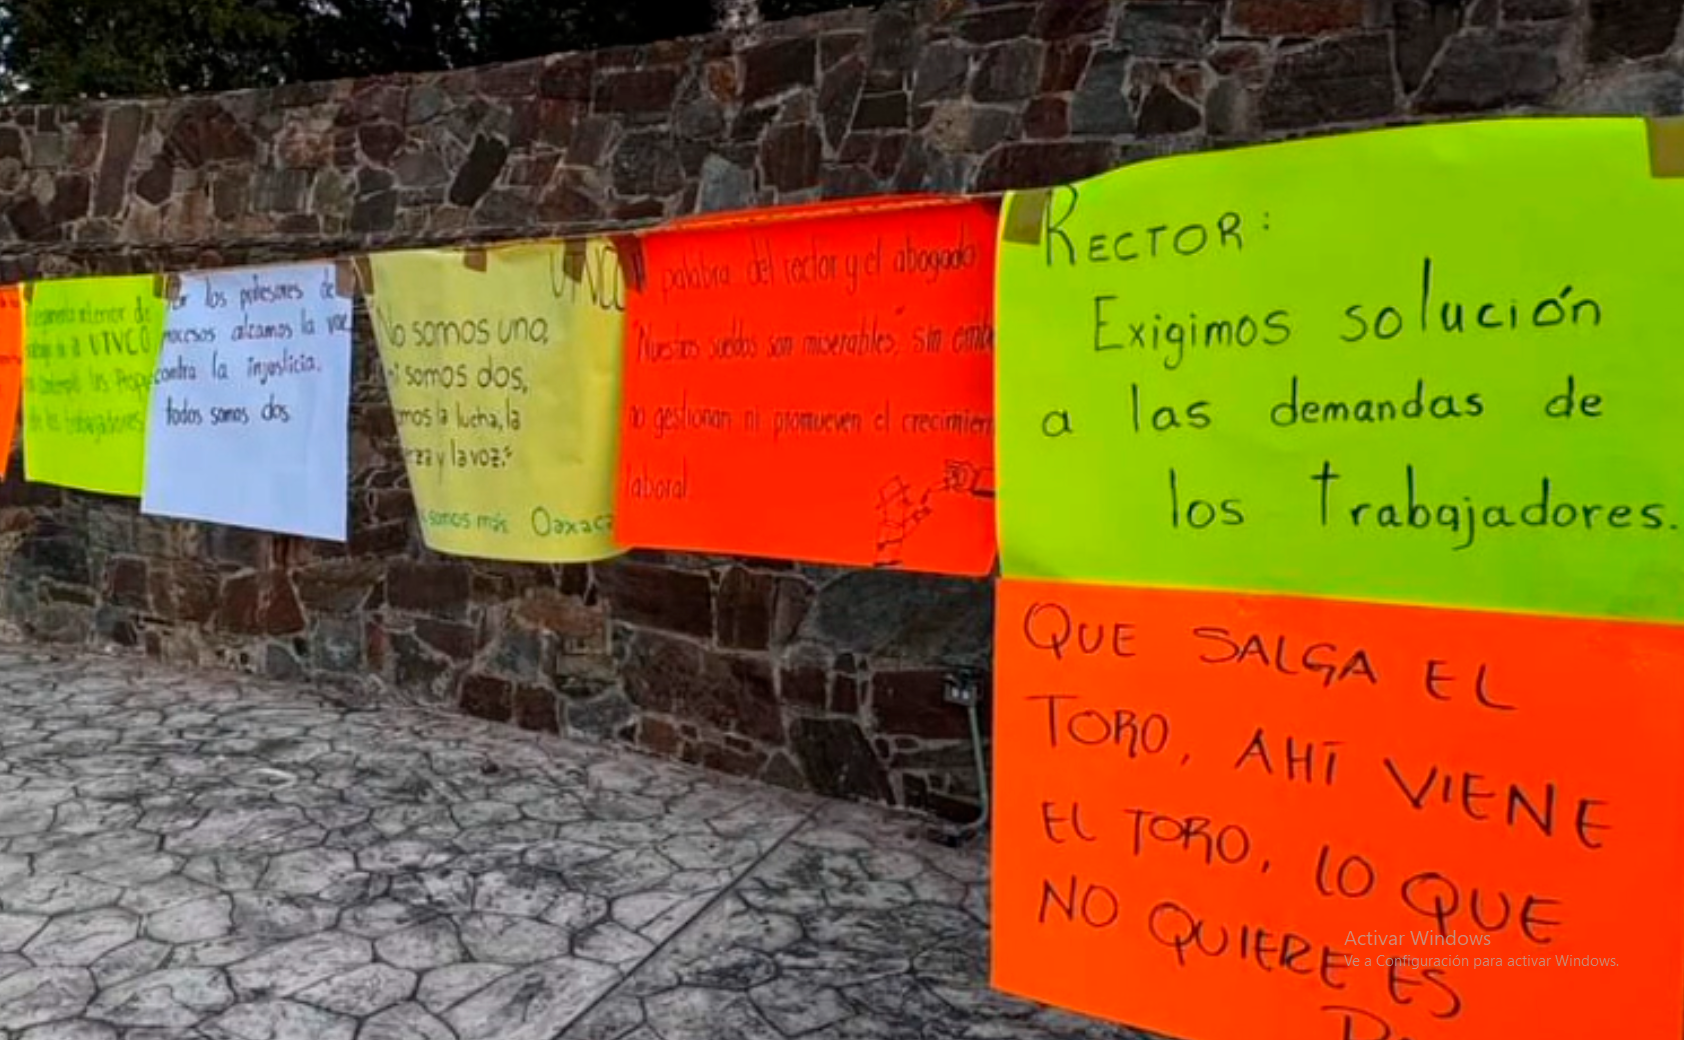 de
UTVCO
de los trabajadores
los profesores de
procesos alzamos la voz
contra la injusticia.
todos somos dos
UTVCO
No somos uno,
ni somos dos,
somos la lucha, la
y la voz."
somos más Oaxaca
palabra del rector y el abogado
"Nuestros sueldos son miserables", sin
no gestionan ni promueven el
laboral
RECTOR:
Exigimos solución
a las demandas de
los trabajadores.
QUE SALGA EL
TORO, AHÍ VIENE
EL TORO, LO QUE
NO QUIERE ES
Activar Windows
Ve a Configuración para activar Windows.